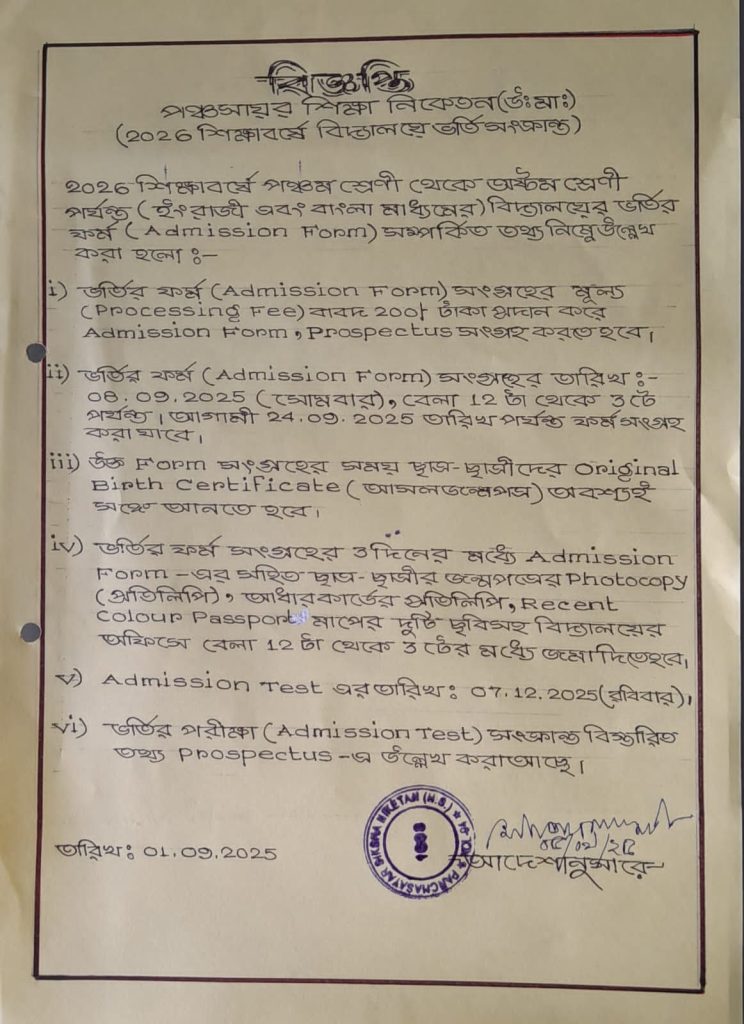 বিজ্ঞপ্তি
পঞ্চসায়র শিক্ষা নিকেতন(উঃমাঃ)
(2026 শিক্ষাবর্ষে বিদ্যালয়ে ভর্তি সংক্রান্ত)
2026 শিক্ষাবর্ষে পঞ্চম শ্রেণী থেকে অষ্টম শ্রেণী
পর্যন্ত (ইংরাজী এবং বাংলা মাধ্যমের) বিদ্যালয়ের ভর্তির
ফর্ম (Admission Form) সম্পর্কিত তথ্য নিম্নে উল্লেখ
করা হলো ঃ-
i) ভর্তির ফর্ম (Admission Form) সংগ্রহের মূল্য
(Processing Fee) বাবদ 200/ টাকা প্রদান করে
Admission Form, Prospectus সংগ্রহ করতে হবে।
ii) ভর্তির ফর্ম (Admission Form) সংগ্রহের তারিখ ঃ-
08.09.2025 (সোমবার), বেলা 12 টা থেকে 3 টে
পর্যন্ত। আগামী 24.09.2025 তারিখ পর্যন্ত ফর্ম সংগ্রহ
করা যাবে।
iii) উক্ত Form সংগ্রহের সময় ছাত্র-ছাত্রীদের Original
Birth Certificate (আসল জন্মপত্র) অবশ্যই
সঙ্গে আনতে হবে।
iv) ভর্তির ফর্ম সংগ্রহের 3 দিনের মধ্যে Admission
Form-এর সহিত ছাত্র-ছাত্রীর জন্মপত্রের Photocopy
(প্রতিলিপি), আধার কার্ডের প্রতিলিপি, Recent
Colour Passport মাপের দুটি ছবিসহ বিদ্যালয়ের
অফিসে বেলা 12 টা থেকে 3 টের মধ্যে জমা দিতে হবে।
v) Admission Test এর তারিখ: 07.12.2025 (রবিবার)।
vi) ভর্তির পরীক্ষা (Admission Test) সংক্রান্ত বিস্তারিত
তথ্য Prospectus-এ উল্লেখ করা আছে।
PANCHASAYAR SIKSHA NIKETAN (H.S.)
তারিখ: 01.09.2025
আদেশানুসারে-